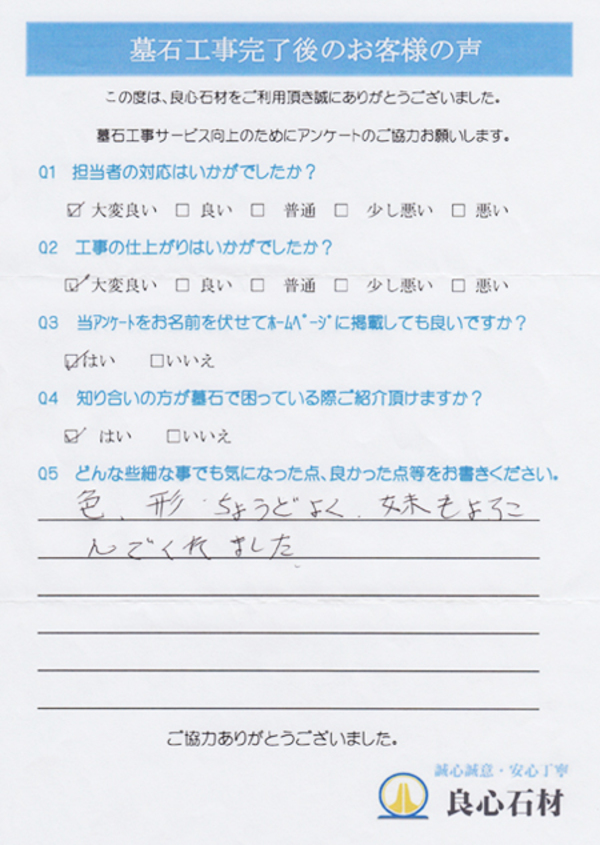 墓石工事完了後のお客様の声
この度は、良心石材をご利用頂き誠にありがとうございました。
墓石工事サービス向上のためにアンケートのご協力お願いします。
Q1 担当者の対応はいかがでしたか？
☑ 大変良い □ 良い □ 普通 □ 少し悪い □ 悪い
Q2 工事の仕上がりはいかがでしたか？
☑ 大変良い □ 良い □ 普通 □ 少し悪い □ 悪い
Q3 当ｱﾝｹｰﾄをお名前を伏せてﾎｰﾑﾍﾟｰｼﾞに掲載しても良いですか？
☑はい □いいえ
Q4 知り合いの方が墓石で困っている際ご紹介頂けますか？
☑ はい □いいえ
Q5 どんな些細な事でも気になった点、良かった点等をお書きください。
色、形、ちょうどよく、妹もよろこ
んでくれました
ご協力ありがとうございました。
誠心誠意・安心丁寧
良心石材